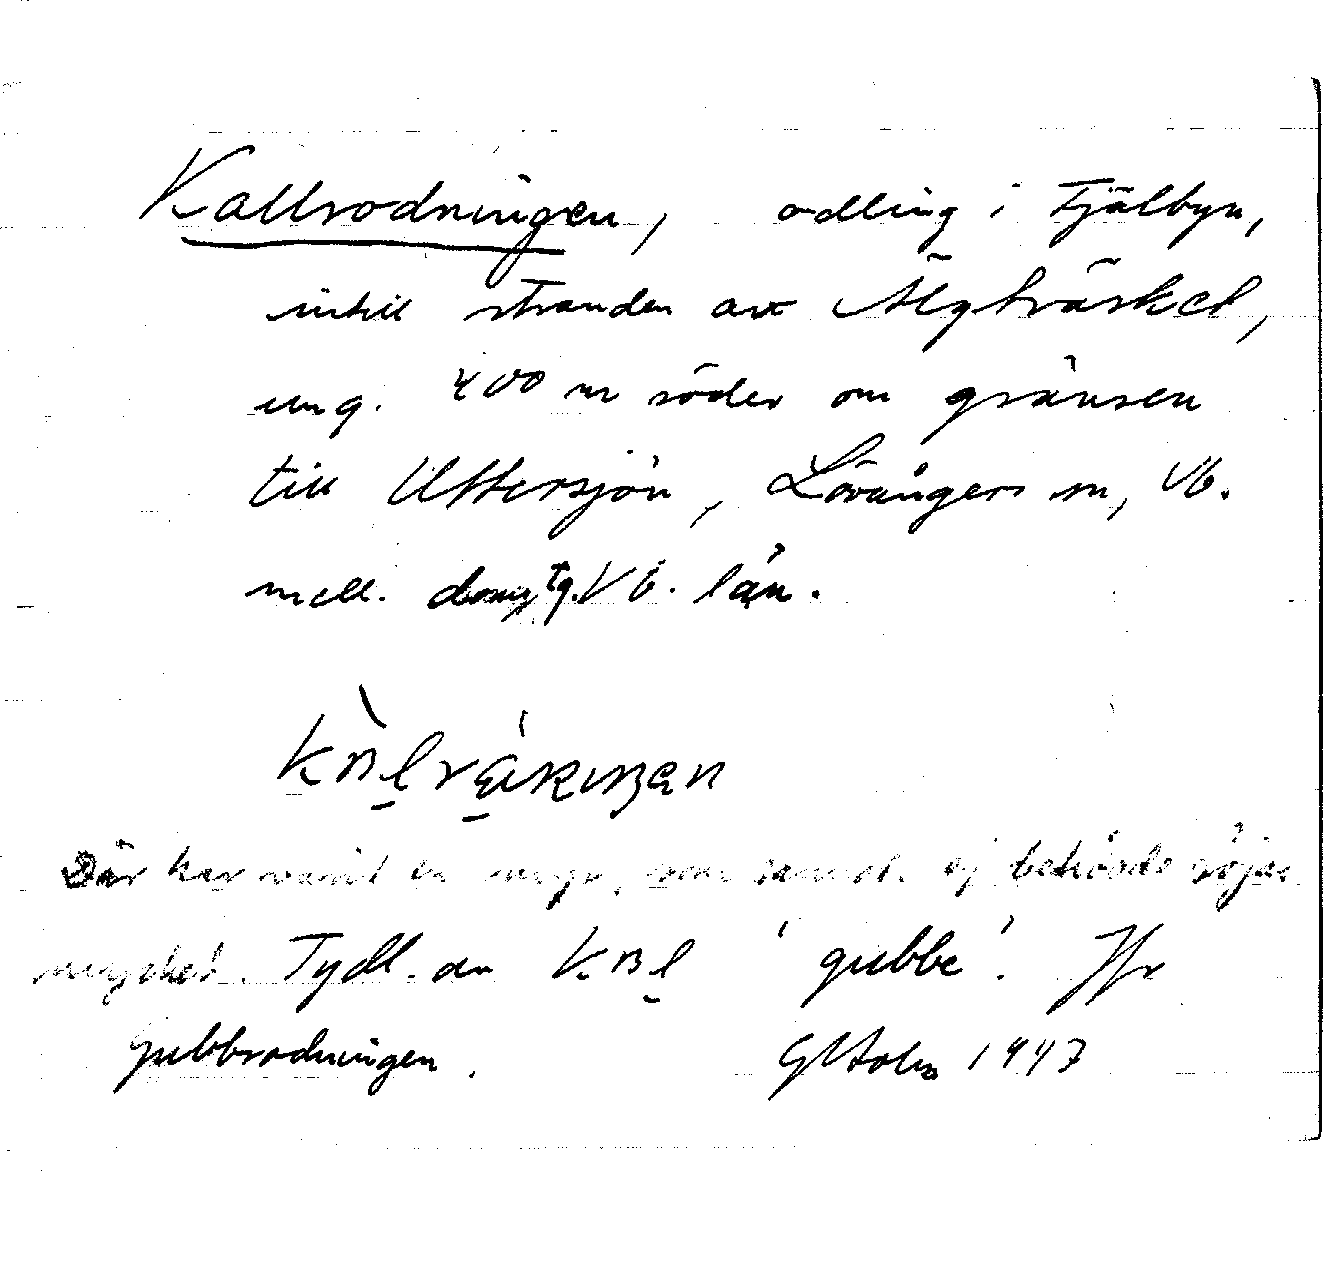 Kallrodningen, odling i Fjälbyn,
intill stranden av Älgträsket,
ung. 400 m söder om gränsen
till Uttersjön, Lövångers sn, Vb.
mell. domstg. Vb. län.
Där har varit en myr, som sannol. ej behövde röjas
mycket. Tydl. av 'gubbe'. Jfr
Gubbrodningen. G Holm 1943